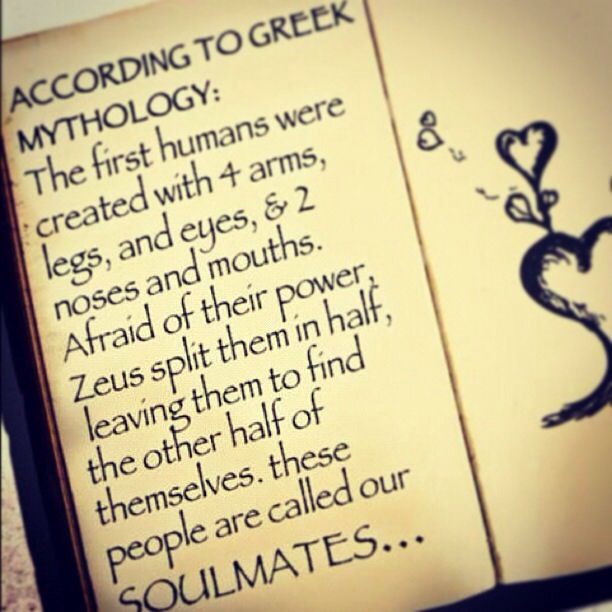 ACCORDING TO GREEK
MYTHOLOGY:
The first humans were
created with 4 arms,
legs, and eyes, & 2
noses and mouths.
Afraid of their power,
Zeus split them in half,
leaving them to find
the other half of
themselves. these
people are called our
SOULMATES...